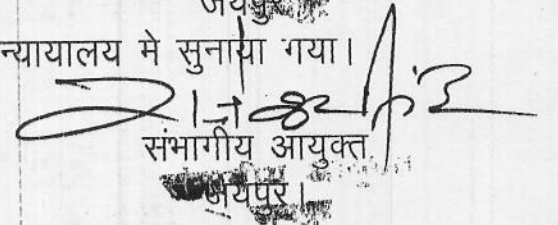 जयपुर
न्यायालय मे सुनाया गया।
संभागीय आयुक्त
जयपुर।